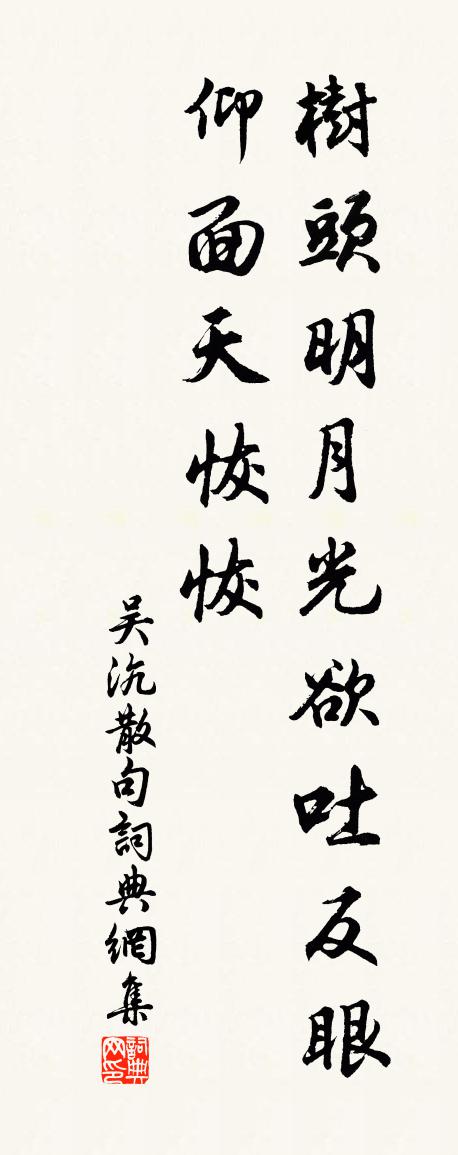 樹頭明月光欲吐反眼
仰面天恢恢
吴沆散句詞典網集
詞典
网印